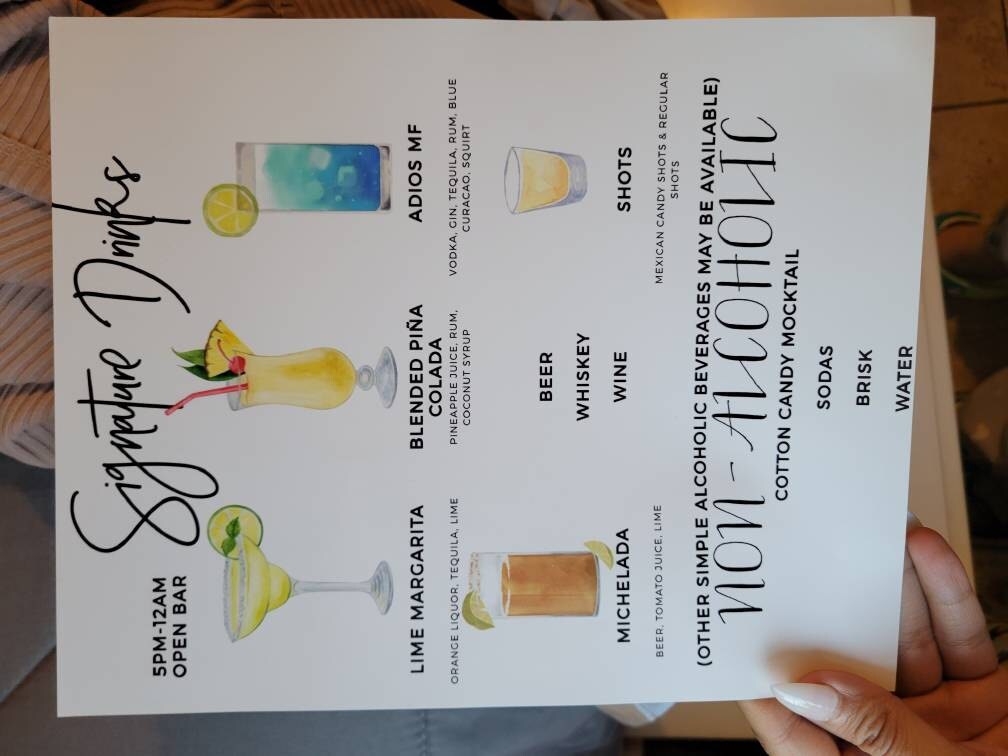 Signature Drinks
5PM-12AM
OPEN BAR
LIME MARGARITA
ORANGE LIQUOR, TEQUILA, LIME
BLENDED PIÑA
COLADA
PINEAPPLE JUICE, RUM,
COCONUT SYRUP
ADIOS MF
VODKA, GIN, TEQUILA, RUM, BLUE
CURACAO, SQUIRT
MICHELADA
BEER, TOMATO JUICE, LIME
BEER
WHISKEY
WINE
SHOTS
MEXICAN CANDY SHOTS & REGULAR
SHOTS
(OTHER SIMPLE ALCOHOLIC BEVERAGES MAY BE AVAILABLE)
NON-ALCOHOLIC
COTTON CANDY MOCKTAIL
SODAS
BRISK
WATER